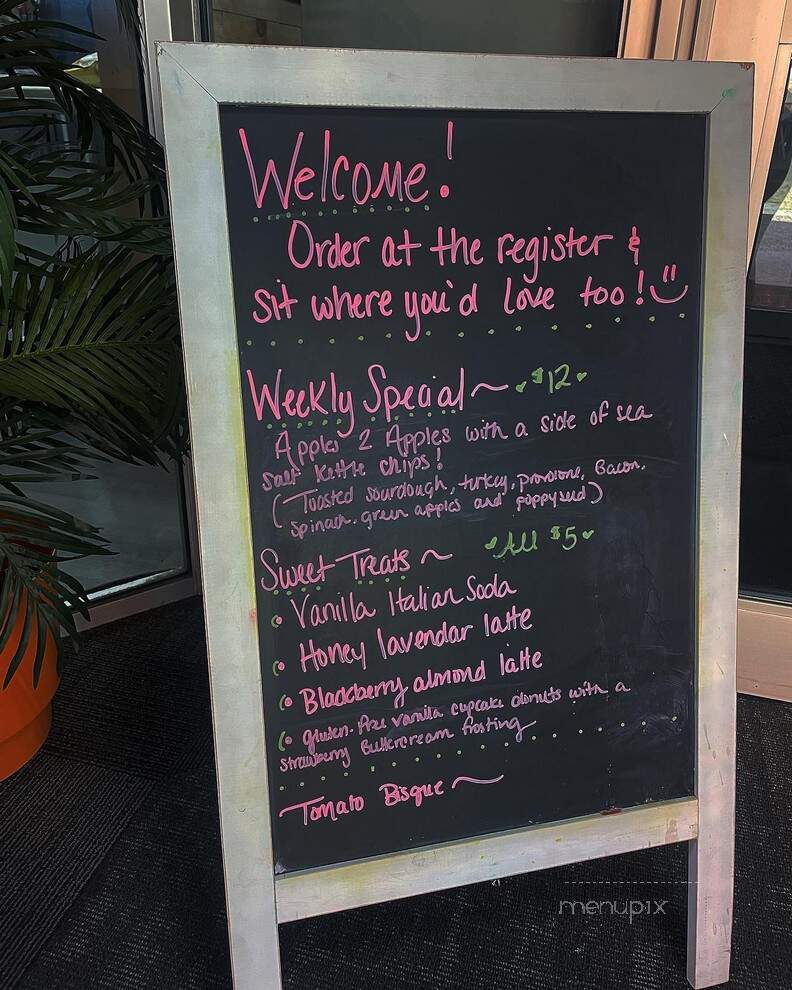 Welcome!
Order at the register &
sit where you'd love too!
Weekly Special~ $12
Apples 2 Apples with a side of sea
salt Kettle chips!
(Toasted sourdough, turkey, provolone, Bacon,
spinach, green apples and poppyseed)
Sweet Treats ~ All $5
• Vanilla Italian Soda
• Honey lavendar latte
• Blackberry almond latte
• gluten-free vanilla cupcake donuts with a
strawberry Buttercream frosting
Tomato Bisque ~
menupix